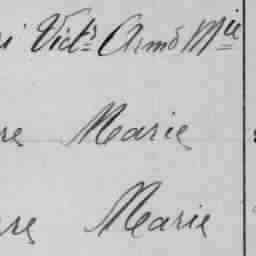 i Vict.r Armd Mie
re Marie
re Marie